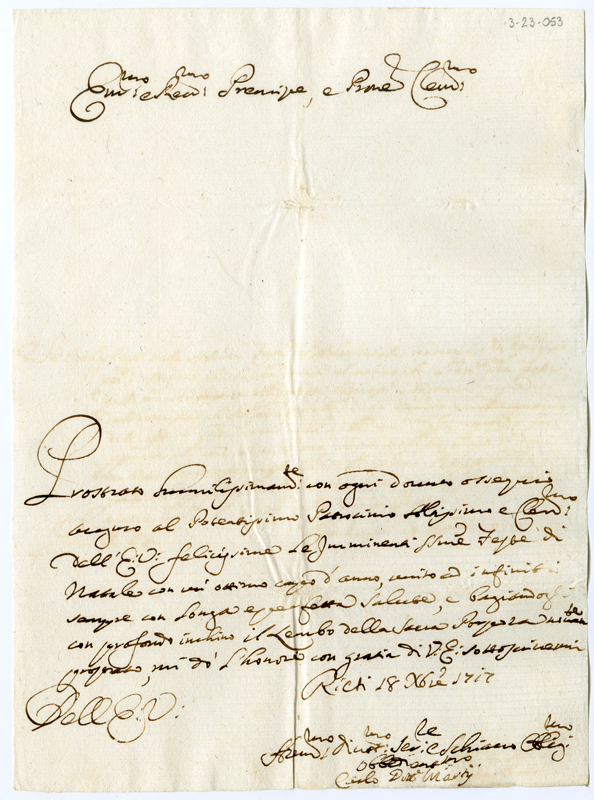 3-23-053
Em:mo e Rev:mo Prencipe, e Prone Clem:mo
Prostrato humilissimam:te con ogni dovuto ossequio
auguro al Potentissimo Patrocinio Altissimo e Clem:mo
dell'E:V: felicissime le Imminenti Feste di
Natale con un'ottimo capo d'anno, unito ad infiniti
sempre con longa e perfetta salute, e baciandogli
con profondo inchino il Lembo della Sacra Porpora
prostrato, mi dò l'honore con gratia di V:E: sottoscrivermi
Rieti 18 Xbre 1717
Dell'E:V:
Hum:mo Divot:mo Ser:e Schiavo Obblig:mo
Carlo Dom: